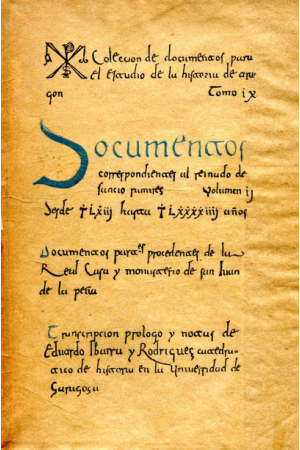 Coleccion de documentos para
el estudio de la historia de ara
gon Tomo ix
Documentos
correspondientes al reinado de
sancio ramires Volumen ii
desde †LXiii hasta †LXXXXiiii años
Documentos para^es procedentes de la
Real Casa y monasterio de san Iuan
de la peña
Transcripcion prologo y notas de
Eduardo Ibarra y Rodriguez catedra
tico de historia en la Universidad de
Saragosa